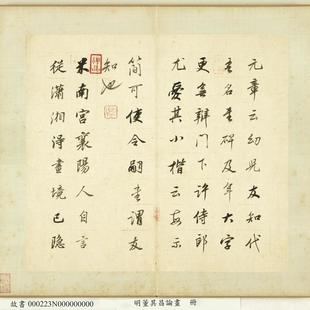 元章云幼兒友知代
吾名書碑及手大字
更無辨門下許侍郎
尤愛其小楷云每示
簡可使令嗣書謂友
知也
米南宮襄陽人自言
從瀟湘得畫境已隱
故書 000223N000000000 明董其昌論畫 冊